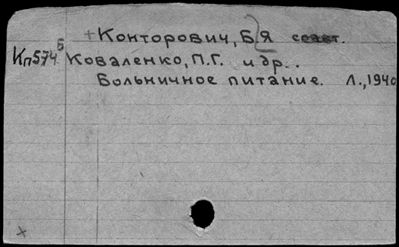 +Конторович, Б.Я соавт.
Кп574 Б Коваленко, П.Г. и др..
Больничное питание. Л., 1940
×